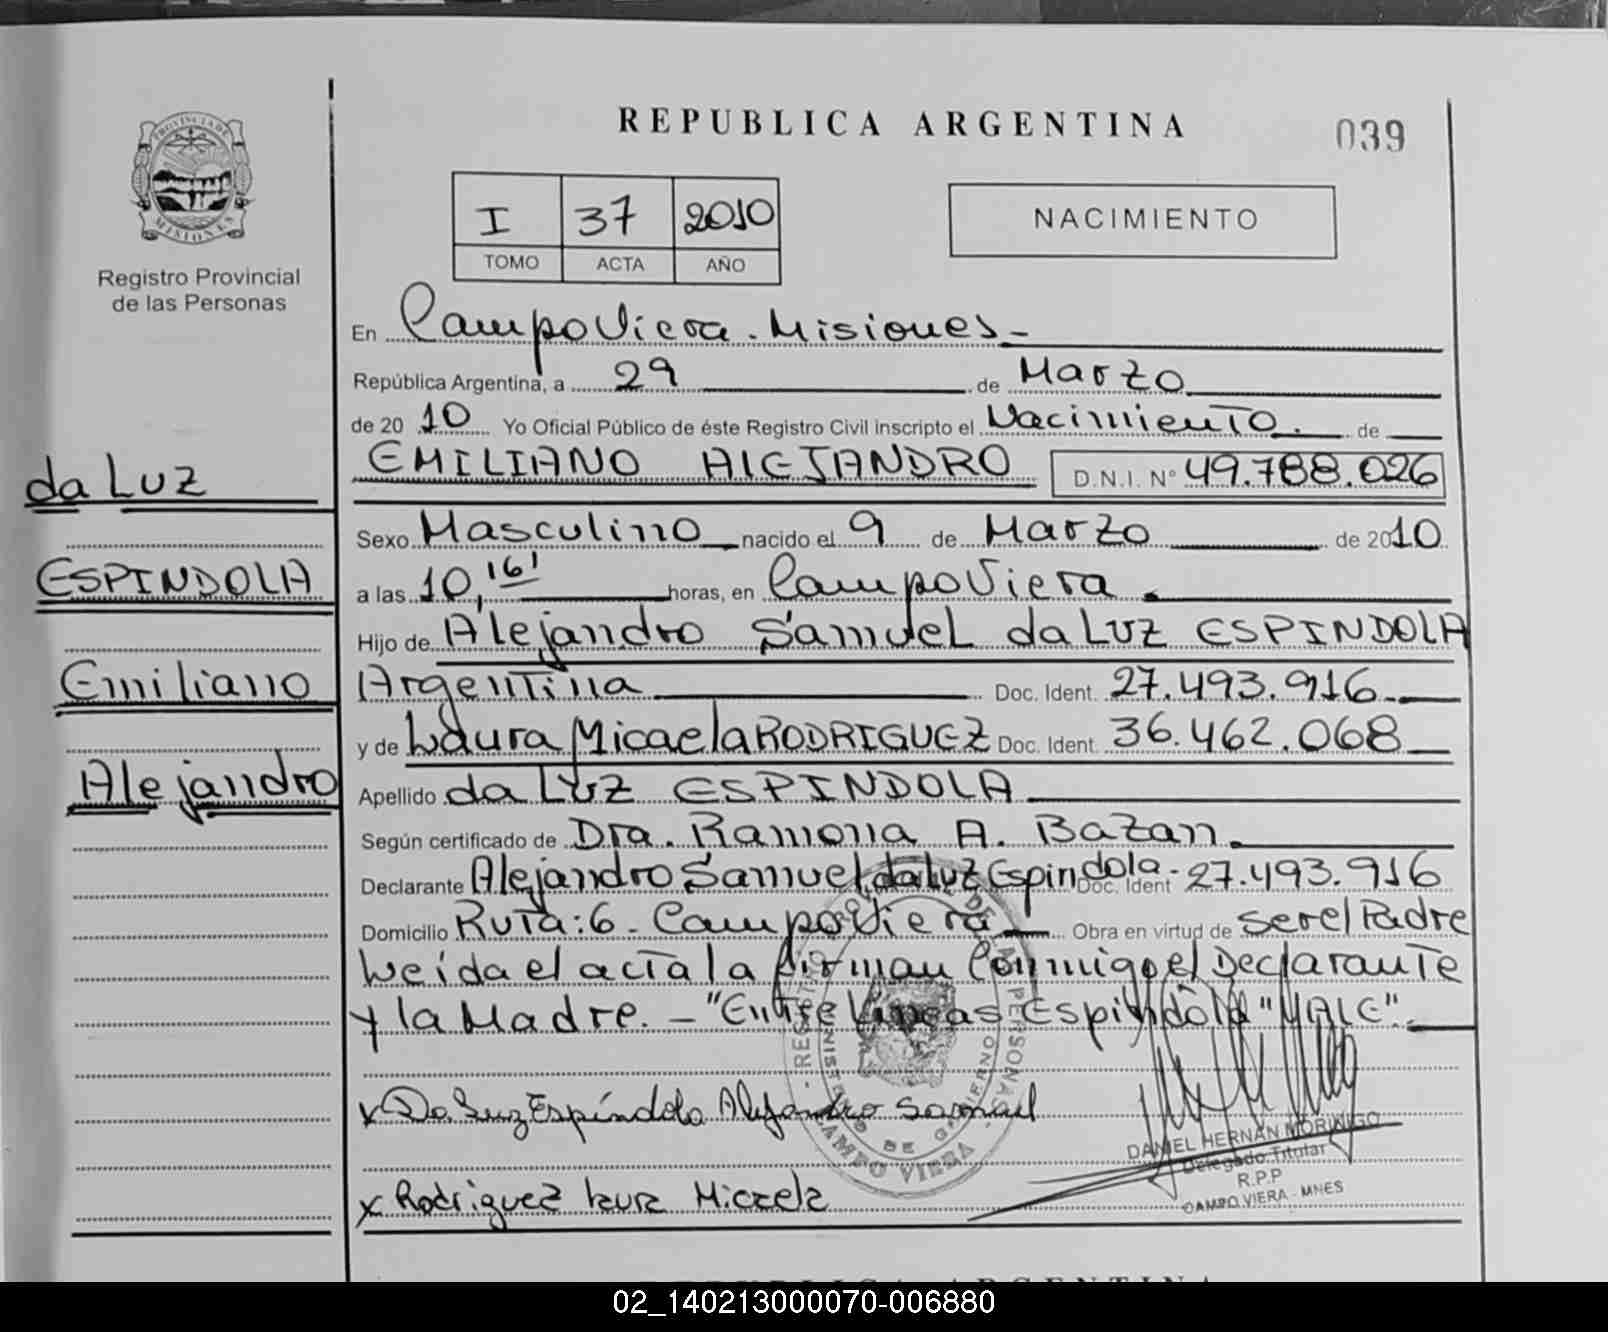 PROVINCIA DE
MISIONES
Registro Provincial
de las Personas
da LUZ
ESPINDOLA
Emiliano
Alejandro
REPUBLICA ARGENTINA
039
I 37 2010
TOMO ACTA AÑO
NACIMIENTO
En Campo Viera. Misiones-
República Argentina, a 29 de Marzo
de 2010 Yo Oficial Público de éste Registro Civil inscripto el Nacimiento. de
EMILIANO AlEJANDRO D.N.I. N° 49.788.026
Sexo Masculino nacido el 9 de Marzo de 2010
a las 10,16' horas, en Campo Viera.
Hijo de Alejandro Samuel da LUZ ESPINDOLA
Argentina Doc. Ident. 27.493.916
y de Laura Micaela RODRIGUEZ Doc. Ident. 36.462.068
Apellido da LUZ ESPINDOLA
Según certificado de Dra. Ramona A. Bazan.
Declarante Alejandro Samuel da Luz Espindola- Doc. Ident 27.493.916
Domicilio Ruta:6- Campo Viera Obra en virtud de ser el Padre
Leída el acta la firman Conmigo el Declarante
y la Madre. - "Entre Lineas Espindola" "VALE".
x Da Luz Espíndola Alejandro Samuel
x Rodriguez Laura Micaela
DANIEL HERNAN MORINIGO
Delegado Titular
R.P.P
CAMPO VIERA - MNES
REGISTRO DE LAS PERSONAS
MINISTERIO DE GOBIERNO
CAMPO VIERA
REPUBLICA ARGENTINA
02_140213000070-006880